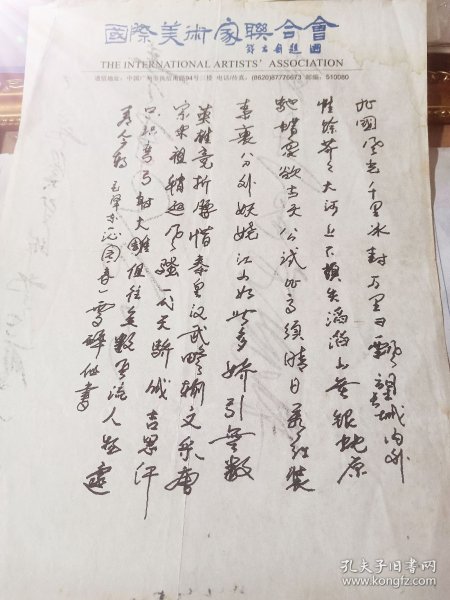 國際美術家聯合會
THE INTERNATIONAL ARTISTS' ASSOCIATION
通信地址：中国广州市执信南路94号二楼 电话/传真：(8620)87776673 邮编：510080
北國風光千里冰封万里雪飘望長城内外
惟餘莽々大河上下頓失滔滔山舞銀蛇原
馳蜡象欲与天公試比高須晴日看红裝
素裹分外妖娆江山如此多娇引無数
英雄竞折腰惜秦皇汉武略輸文采唐
宗宋祖稍遜風騷一代天骄成吉思汗
只识弯弓射大雕俱往矣数風流人物還
看今朝
毛泽东沁园春雪
孔夫子旧书网
www.kongfz.com